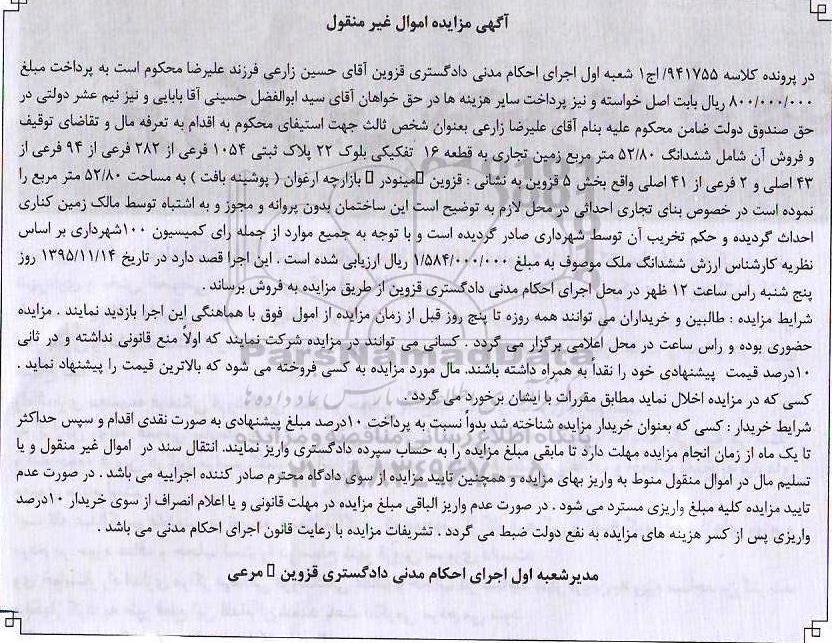 آگهی مزایده اموال غیر منقول
در پرونده کلاسه ۹۴۱۷۵۵/اج۱ شعبه اول اجرای احکام مدنی دادگستری قزوین آقای حسین زارعی فرزند علیرضا محکوم است به پرداخت مبلغ
۸۰۰/۰۰۰/۰۰۰ ریال بابت اصل خواسته و نیز پرداخت سایر هزینه ها در حق خواهان آقای سید ابوالفضل حسینی آقا بابایی و نیز نیم عشر دولتی در
حق صندوق دولت ضامن محکوم علیه بنام آقای علیرضا زارعی بعنوان شخص ثالث جهت استیفای محکوم به اقدام به تعرفه مال و تقاضای توقیف
و فروش آن شامل ششدانگ ۵۲/۸۰ متر مربع زمین تجاری به قطعه ۱۶ تفکیکی بلوک ۲۲ پلاک ثبتی ۱۰۵۴ فرعی از ۲۸۲ فرعی از ۹۴ فرعی از
۴۳ اصلی و ۲ فرعی از ۴۱ اصلی واقع بخش ۵ قزوین به نشانی : قزوین مینودر بازارچه ارغوان ( پوشینه بافت ) به مساحت ۵۲/۸۰ متر مربع را
نموده است در خصوص بنای تجاری احداثی در محل لازم به توضیح است این ساختمان بدون پروانه و مجوز و به اشتباه توسط مالک زمین کناری
احداث گردیده و حکم تخریب آن توسط شهرداری صادر گردیده است و با توجه به جمیع موارد از جمله رای کمیسیون ۱۰۰شهرداری بر اساس
نظریه کارشناس ارزش ششدانگ ملک موصوف به مبلغ ۱/۵۸۴/۰۰۰/۰۰۰ ریال ارزیابی شده است . این اجرا قصد دارد در تاریخ ۱۳۹۵/۱۱/۱۴ روز
پنج شنبه راس ساعت ۱۲ ظهر در محل اجرای احکام مدنی دادگستری قزوین از طریق مزایده به فروش برساند .
شرایط مزایده : طالبین و خریداران می توانند همه روزه تا پنج روز قبل از زمان مزایده از امول فوق با هماهنگی این اجرا بازدید نمایند . مزایده
حضوری بوده و راس ساعت در محل اعلامی برگزار می گردد . کسانی می توانند در مزایده شرکت نمایند که اولاً منع قانونی نداشته و در ثانی
۱۰درصد قیمت پیشنهادی خود را نقداً به همراه داشته باشند. مال مورد مزایده به کسی فروخته می شود که بالاترین قیمت را پیشنهاد نماید .
کسی که در مزایده اخلال نماید مطابق مقررات با ایشان برخورد می گردد .
شرایط خریدار : کسی که بعنوان خریدار مزایده شناخته شد بدواً نسبت به پرداخت ۱۰درصد مبلغ پیشنهادی به صورت نقدی اقدام و سپس حداکثر
تا یک ماه از زمان انجام مزایده مهلت دارد تا مابقی مبلغ مزایده را به حساب سپرده دادگستری واریز نمایند. انتقال سند در اموال غیر منقول و یا
تسلیم مال در اموال منقول منوط به واریز بهای مزایده و همچنین تایید مزایده از سوی دادگاه محترم صادر کننده اجراییه می باشد . در صورت عدم
تایید مزایده کلیه مبلغ واریزی مسترد می شود . در صورت عدم واریز الباقی مبلغ مزایده در مهلت قانونی و یا اعلام انصراف از سوی خریدار ۱۰درصد
واریزی پس از کسر هزینه های مزایده به نفع دولت ضبط می گردد . تشریفات مزایده با رعایت قانون اجرای احکام مدنی می باشد .
مدیرشعبه اول اجرای احکام مدنی دادگستری قزوین مرعی
ParsNamadData